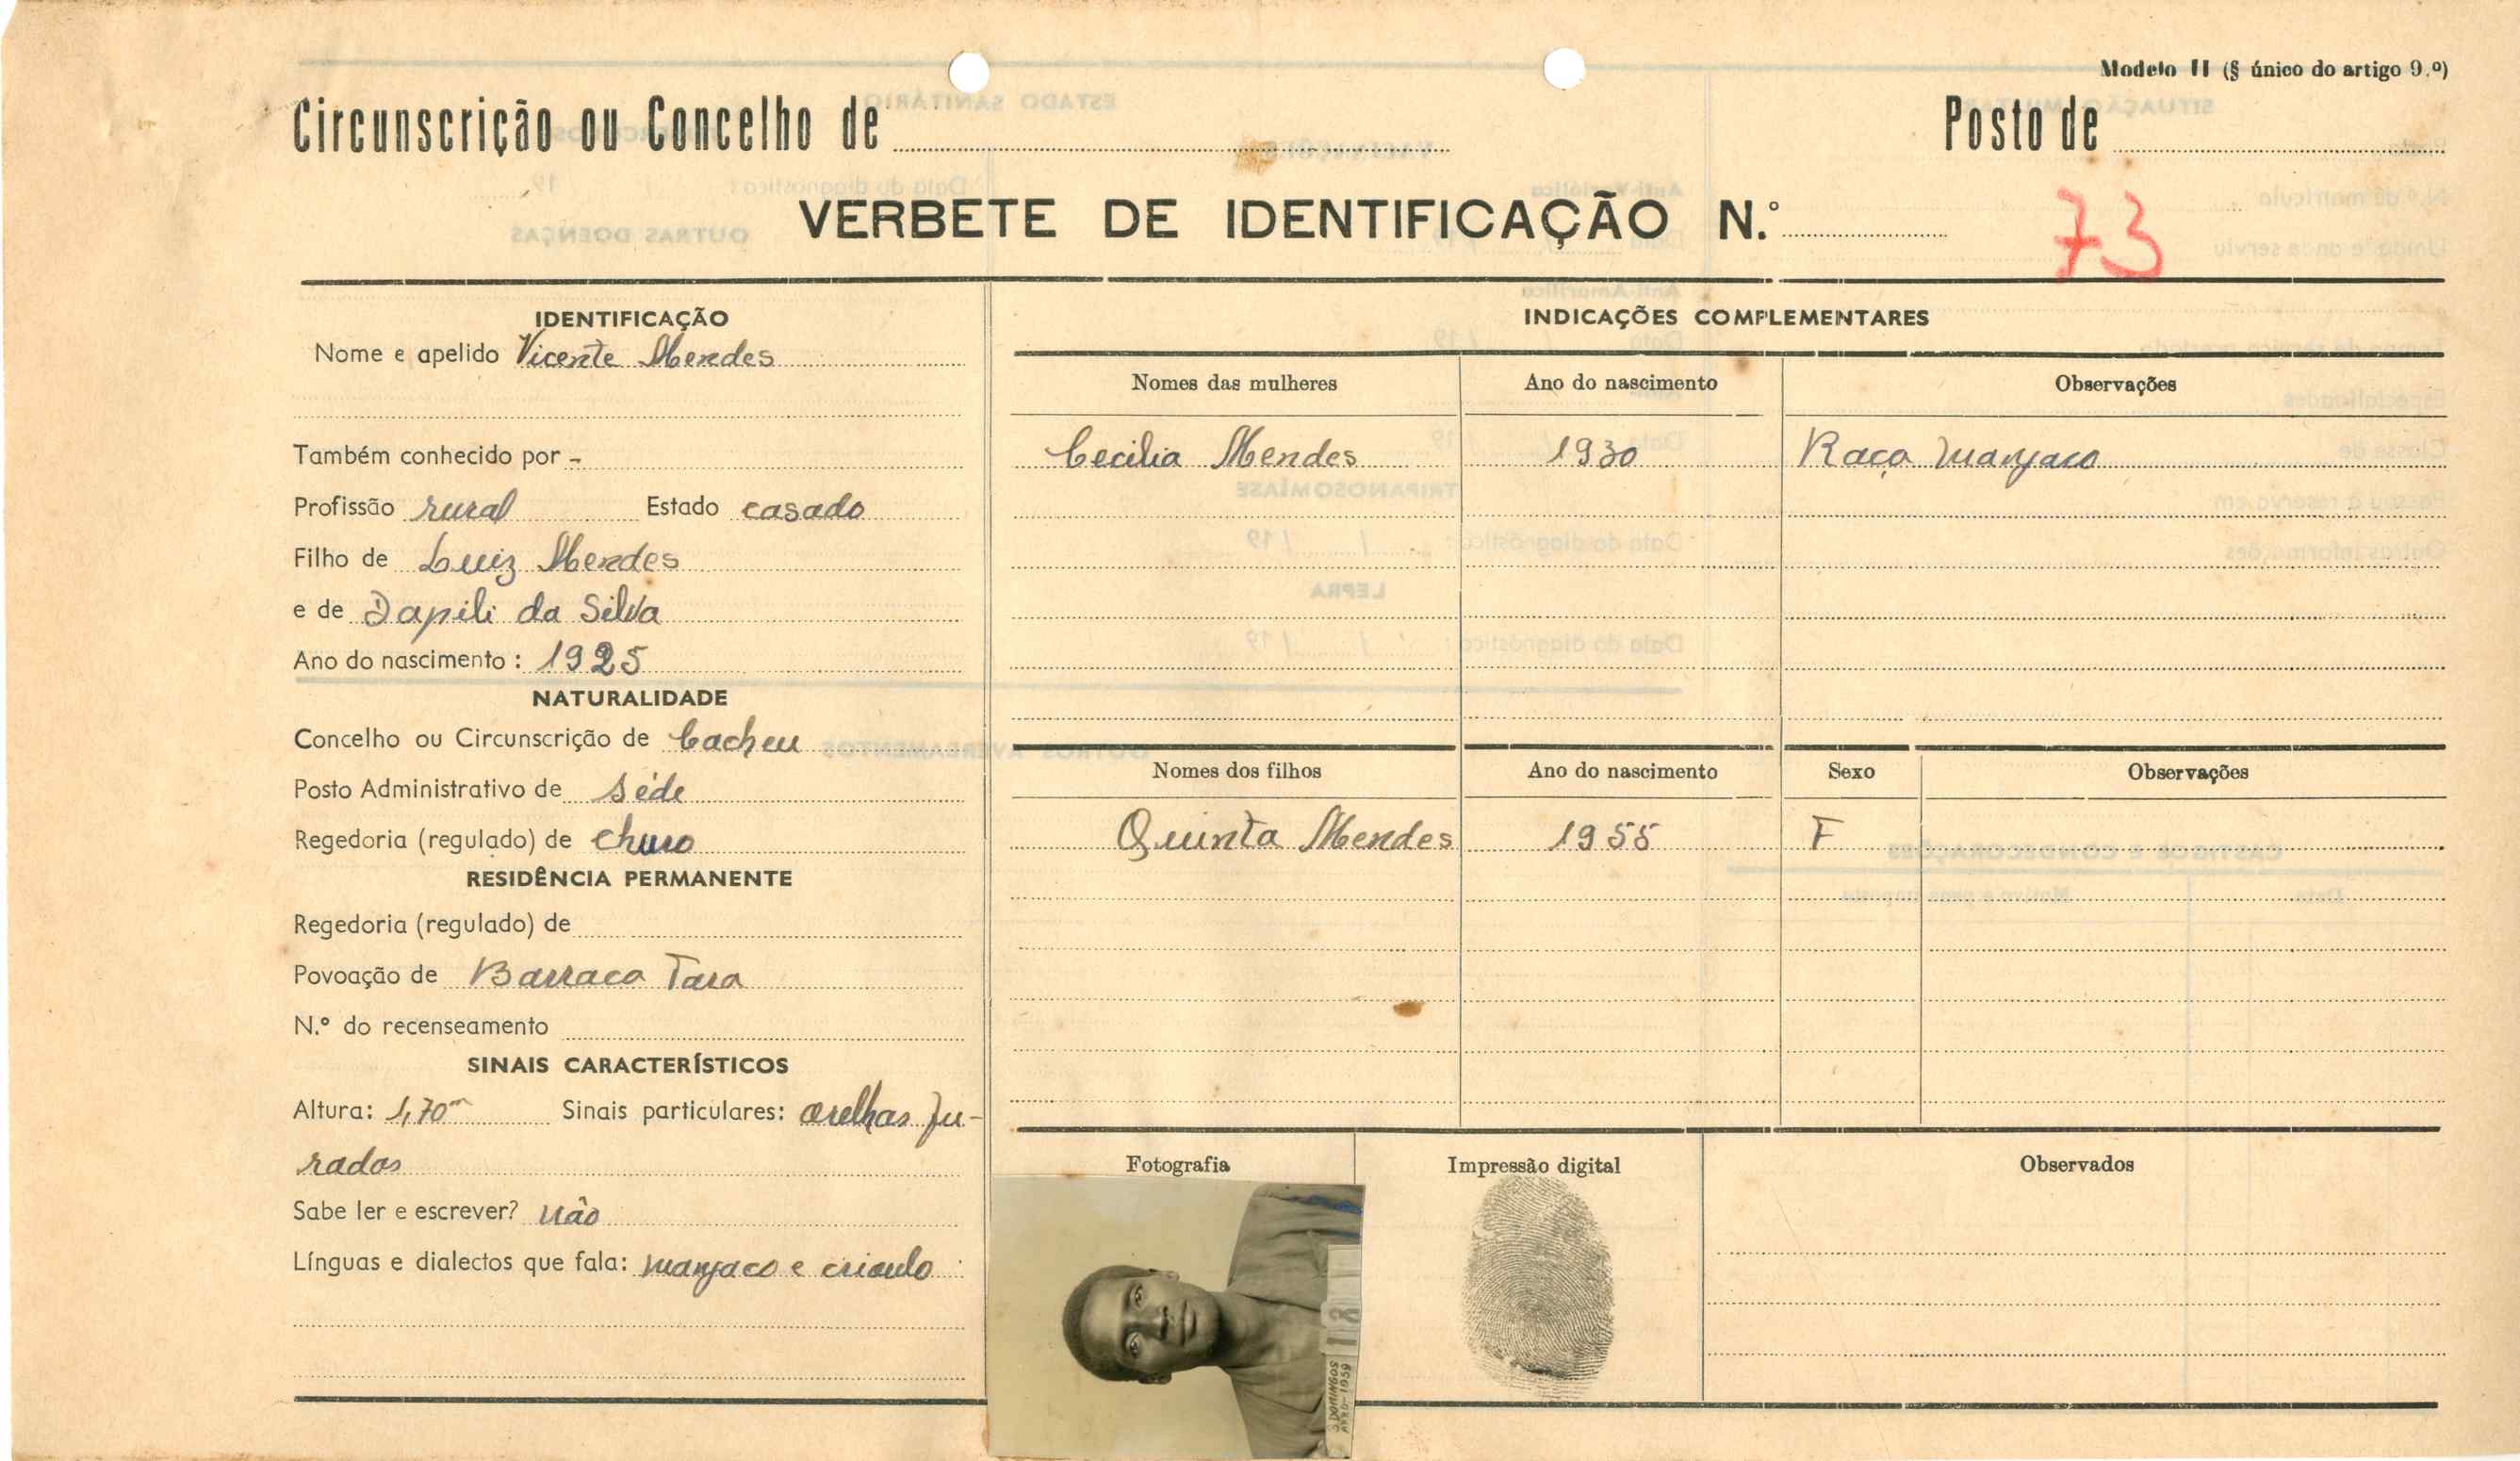 Modelo II (§ único do artigo 9.º)
Circunscrição ou Concelho de
Posto de
VERBETE DE IDENTIFICAÇÃO N.º
73
IDENTIFICAÇÃO
Nome e apelido Vicente Mendes
Também conhecido por -
Profissão rural Estado casado
Filho de Luiz Mendes
e de Dapili da Silva
Ano do nascimento: 1925
NATURALIDADE
Concelho ou Circunscrição de Cacheu
Posto Administrativo de séde
Regedoria (regulado) de Churo
RESIDÊNCIA PERMANENTE
Regedoria (regulado) de
Povoação de Barraca Tara
N.º do recenseamento
SINAIS CARACTERÍSTICOS
Altura: 1,70m Sinais particulares: orelhas fu-
radas
Sabe ler e escrever? não
Línguas e dialectos que fala: manjaco e crioulo
INDICAÇÕES COMPLEMENTARES
Nomes das mulheres Ano do nascimento Observações
Cecilia Mendes 1930 Raça manjaco
Nomes dos filhos Ano do nascimento Sexo Observações
Quinta Mendes 1955 F
Fotografia Impressão digital Observados
S. DOMINGOS
1959